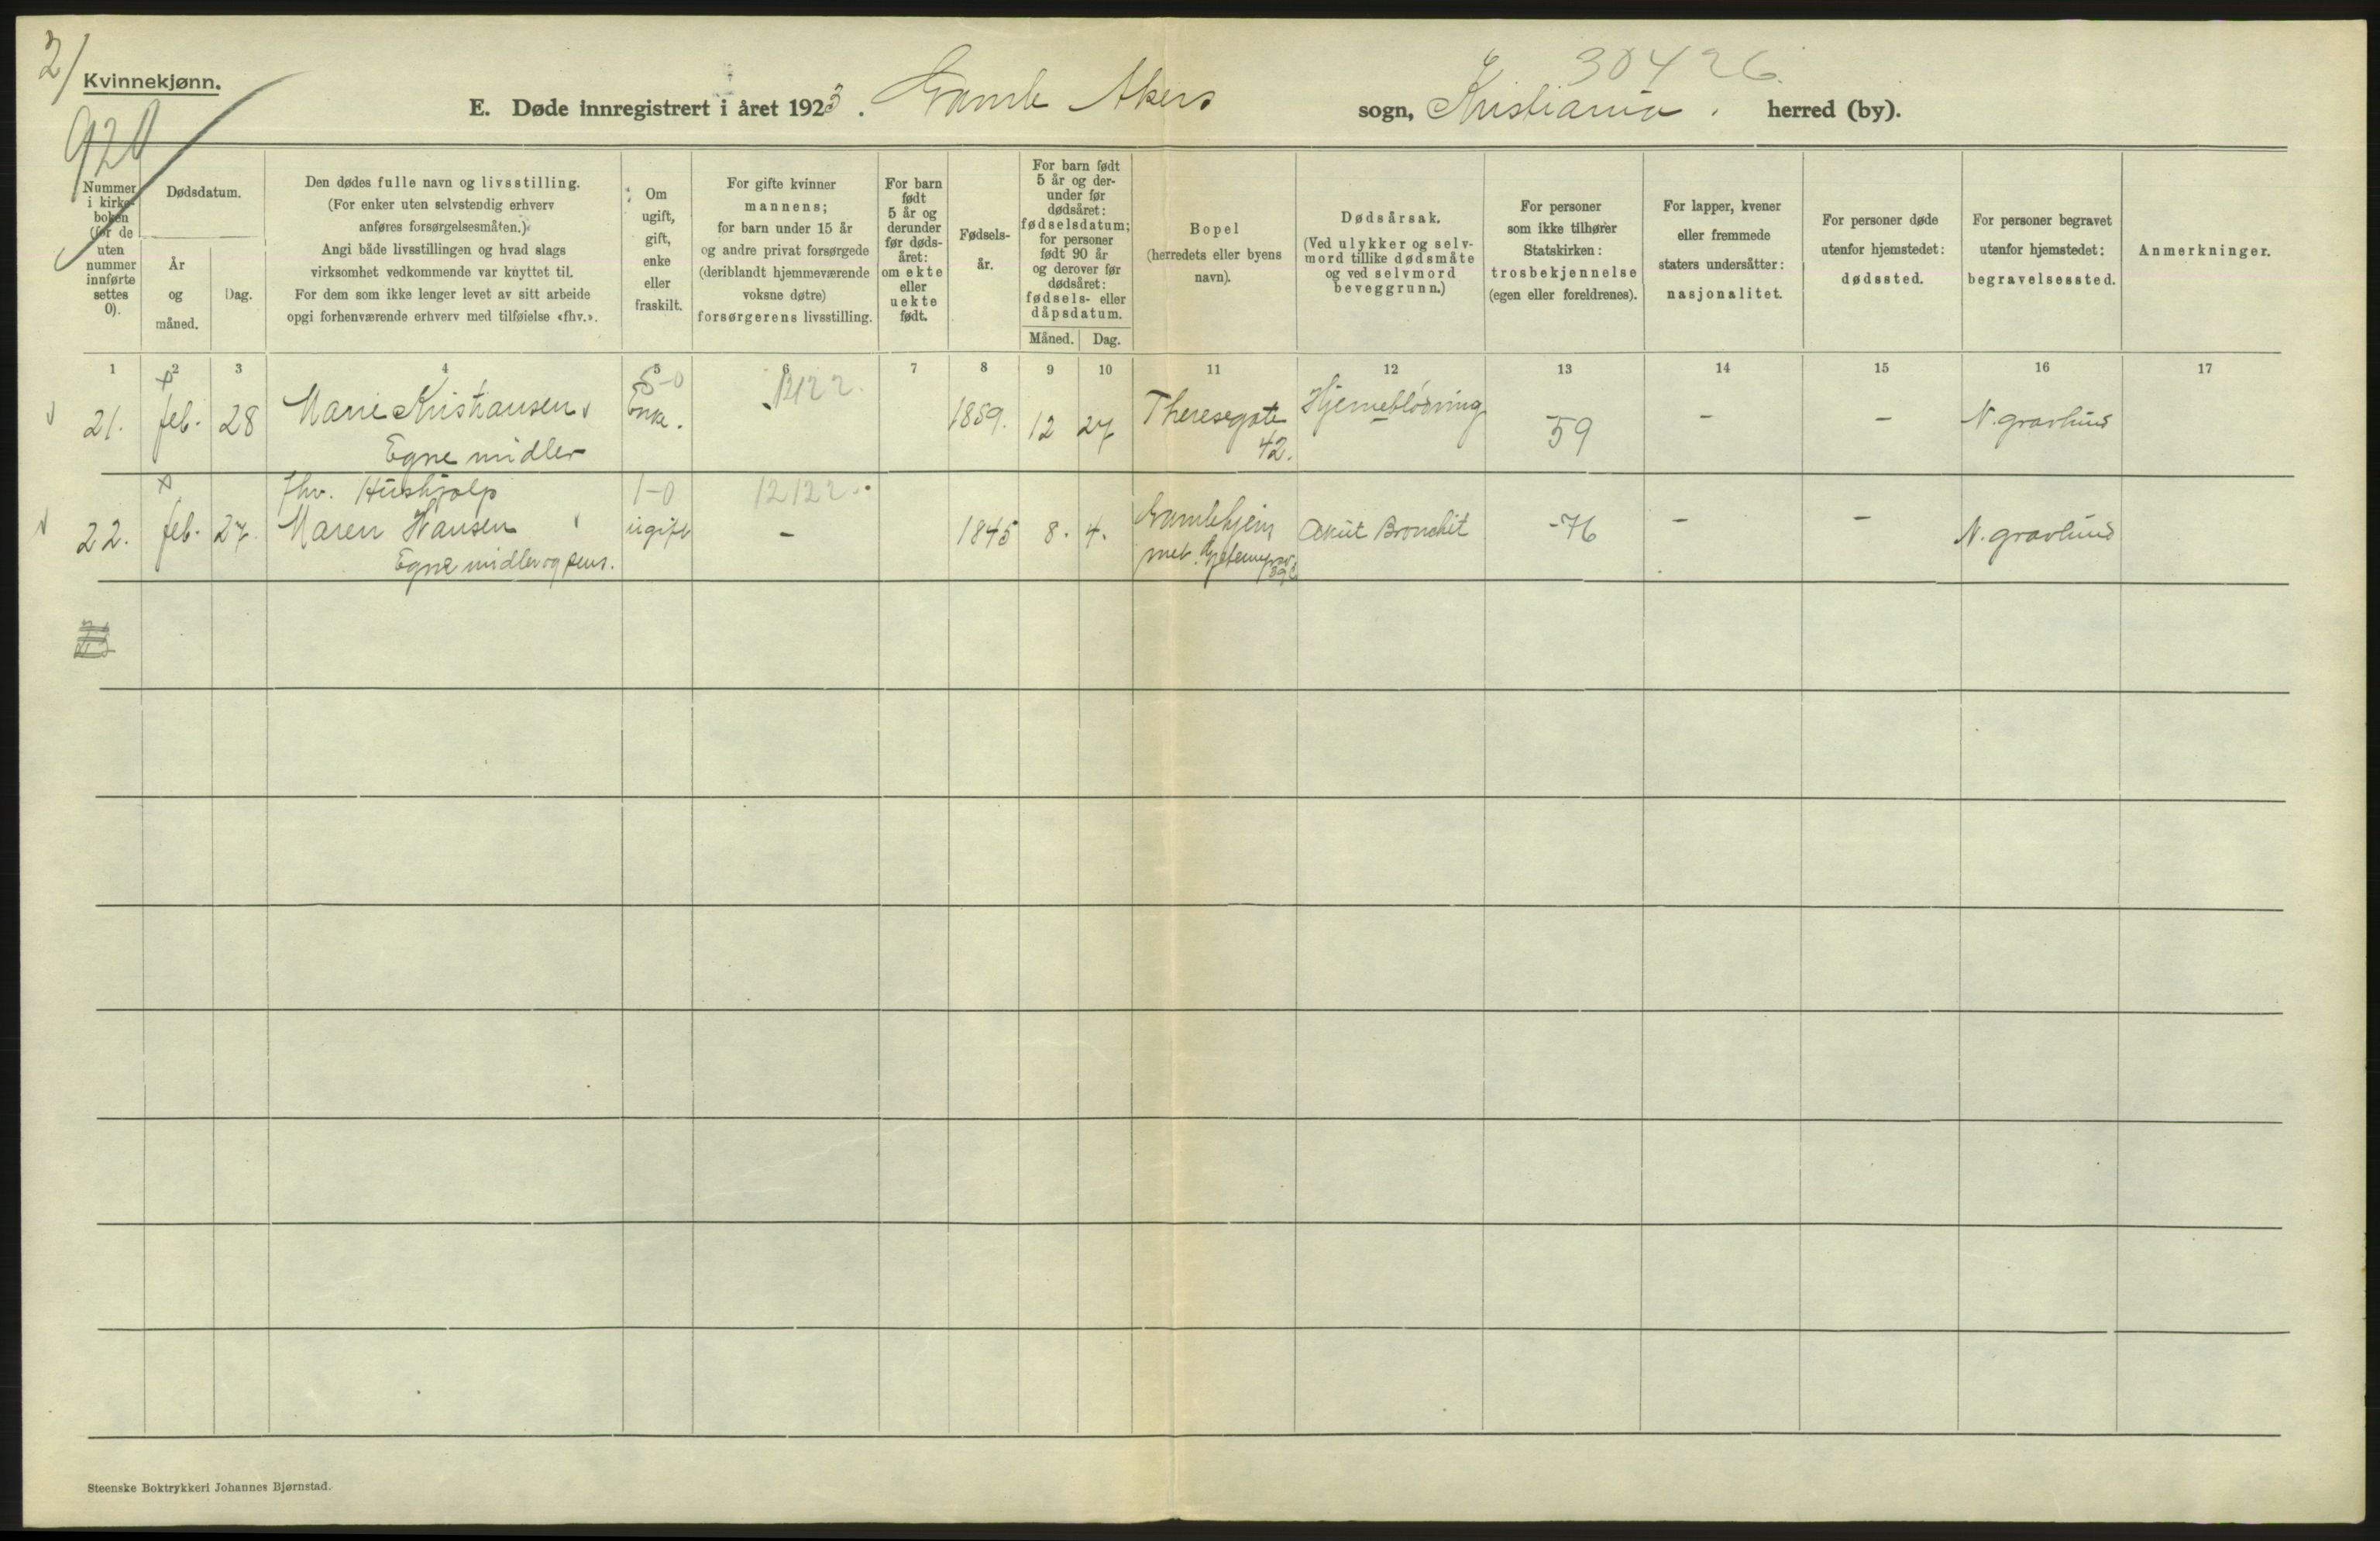 2/
Kvinnekjønn.
920
30426
E. Døde innregistrert i året 1923. Gamle Akers sogn, Kristiania. herred (by).
Nummer i kirkeboken (for de uten nummer innførte settes 0).
Dødsdatum.
År og måned.
Dag.
Den dødes fulle navn og livsstilling.
(For enker uten selvstendig erhverv
anføres forsørgelsesmåten.)
Angi både livsstillingen og hvad slags
virksomhet vedkommende var knyttet til.
For dem som ikke lenger levet av sitt arbeide
opgi forhenværende erhverv med tilføielse «fhv.».
Om ugift, gift, enke eller fraskilt.
For gifte kvinner
mannens;
for barn under 15 år
og andre privat forsørgede
(deriblandt hjemmeværende
voksne døtre)
forsørgerens livsstilling.
For barn født 5 år og derunder før dødsåret: om ekte eller uekte født.
Fødselsår.
For barn født 5 år og derunder før dødsåret: fødselsdatum; for personer født 90 år og derover før dødsåret: fødsels- eller dåpsdatum.
Måned. Dag.
Bopel
(herredets eller byens
navn).
Dødsårsak.
(Ved ulykker og selv-
mord tillike dødsmåte
og ved selvmord
beveggrunn.)
For personer
som ikke tilhører
Statskirken:
trosbekjennelse
(egen eller foreldrenes).
For lapper, kvener
eller fremmede
staters undersåtter:
nasjonalitet.
For personer døde
utenfor hjemstedet:
dødssted.
For personer begravet
utenfor hjemstedet:
begravelsessted.
Anmerkninger.
1 2 3 4 5 6 7 8 9 10 11 12 13 14 15 16 17
21. feb. 28 Marie Kristiansen Enke. 12122. 1859. 12 27 Theresegate 42. Hjerneblødning - 59 - - N. gravlund
Egne midler
fhv. Hushjælp 1-0 12122
22. feb. 27. Maren Hansen ugift - 1845 8. 4. Gamlehjem Akut Bronchit - 76 - - N. gravlund
Egne midler og pens.
Steenske Boktrykkeri Johannes Bjørnstad.